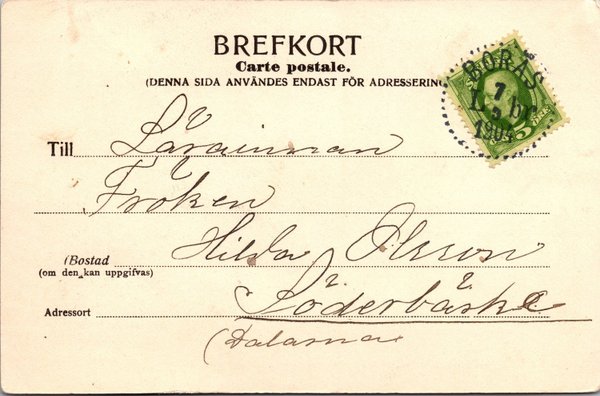 BREFKORT
Carte postale.
(DENNA SIDA ANVÄNDES ENDAST FÖR ADRESSERIN
BORÅS
1
1904
5
Till Lärarinnan
Fröken
(Bostad Hilda Olsson
(om den kan uppgifvas)
Adressort Söderbärke
(Dalarna